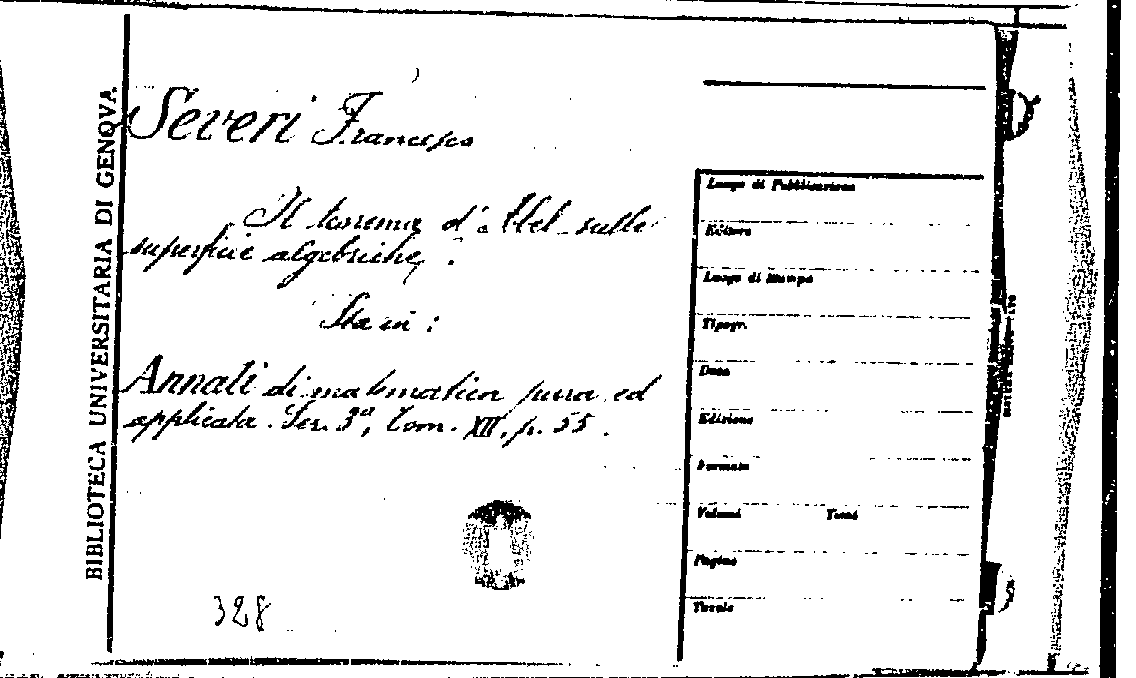 BIBLIOTECA UNIVERSITARIA DI GENOVA
Severi Francesco
Il teorema d'Abel sulle
superficie algebriche.
Sta in:
Annali di matematica pura ed
applicata. Ser. 3ª, Tom. XII, p. 55.
328
Luogo di Pubblicazione
Editore
Luogo di Stampa
Tipogr.
Data
Edizione
Formato
Volumi Tomi
Pagine
Tavole